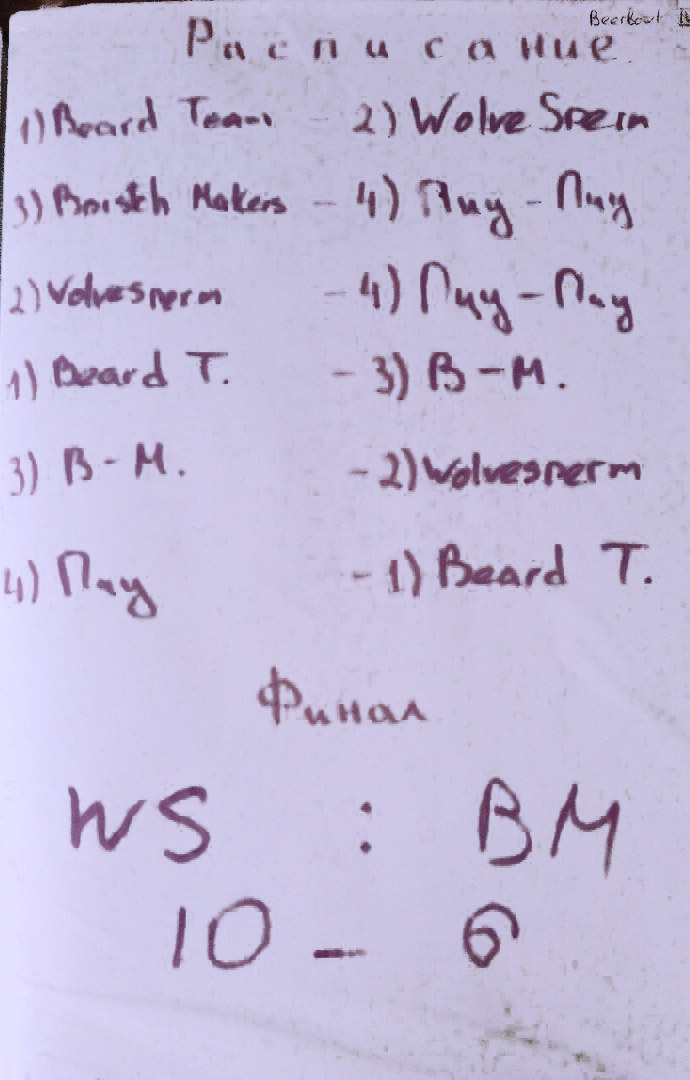 Beerbout
Расписание
1) Beard Team - 2) WolveSperm
3) Bnistch Makers - 4) Пиу - Пиу
2) Wolvesperm - 4) Пиу - Пиу
1) Beard T. - 3) B-M.
3) B-M. - 2) Wolvesperm
4) Пиу - 1) Beard T.
Финал
WS : BM
10 - 6